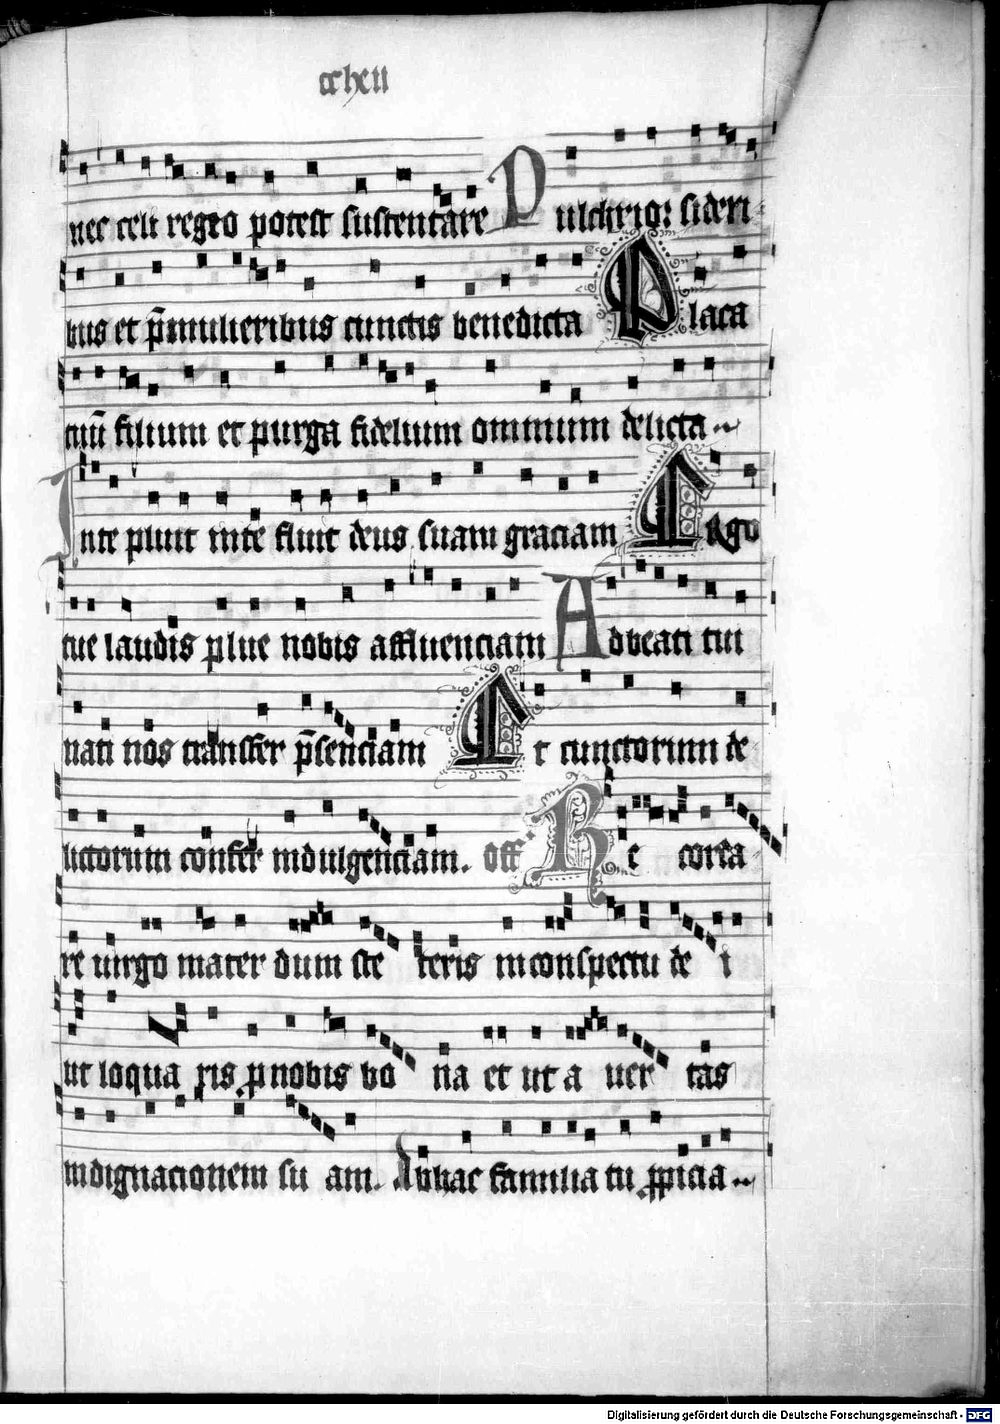 nec celi regio potest sustentare Pulchrior sideri
bus et p̄ mulieribus cunctis benedicta Placa
tuū filium et purga fidelium omnium delicta
In te pluit in te fluit deus suam graciam Ergo
tue laudis plue nobis affluenciam Ad beati tui
nati nos transfer p̄senciam Et cunctorum de
lictorum confer indulgenciam. Off Re corda
re uirgo mater dum ste teris in conspectu de i
ut loqua ris p nobis bo na et ut a uer tas
indignacionem su am. Ab hac familia tu ppicia
Digitalisierung gefördert durch die Deutsche Forschungsgemeinschaft - DFG